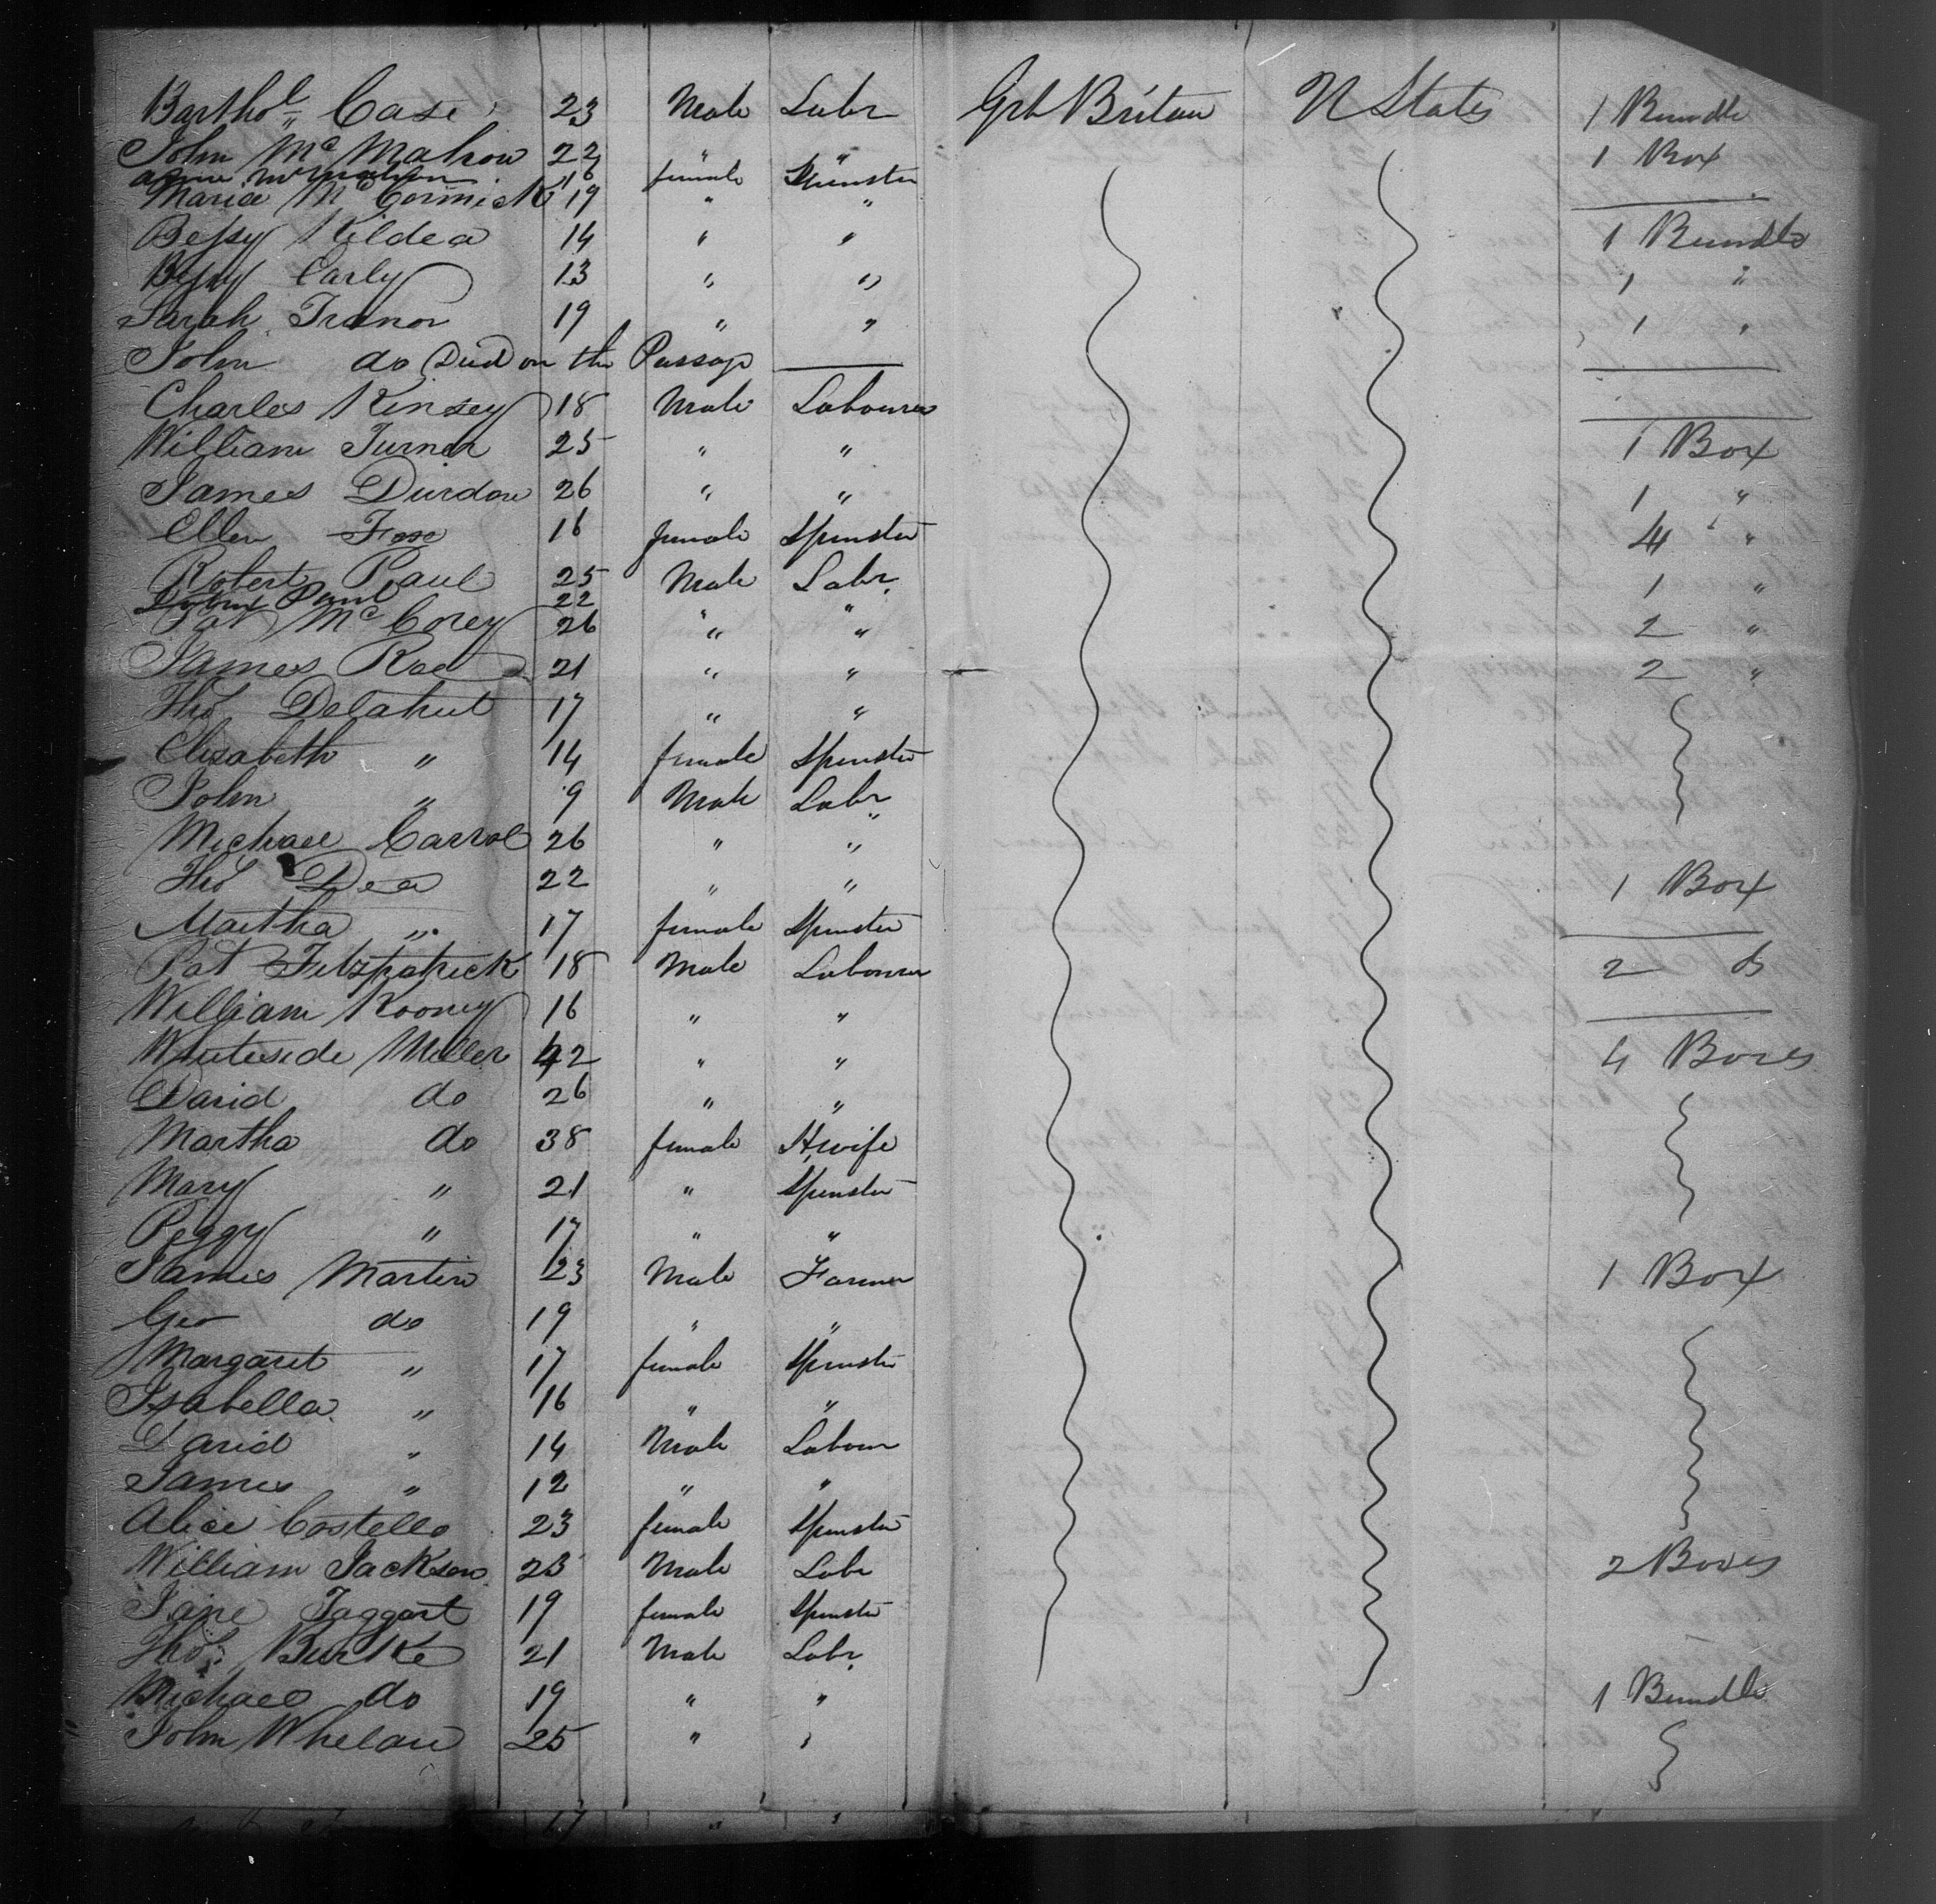 Bartho<sup>l</sup> Case 23 Male Labr Grt Britan U States 1 Bundle
John Mc Mahon 22 " " 1 Box
Mc Mahon 16 female Spinster
Maria Mc Cormick 19 " "
Bessy Kildea 14 " " 1 Bundle
Bessy Carly 13 " " 1 "
Sarah Tranor 19 " " 1 "
John do Died on the Passage
Charles Kinsey 18 Male Labourer
William Turner 25 " " 1 Box
James Durdon 26 " " 1 "
Ellen 16 female Spinster 4 "
Robert Paul 25 Male Labr 1 "
Paul 22
Pat Mc Corey 26 " " 2 "
James Roe 21 " " 2 "
Thos Delahut 17 " "
Elizabeth " 14 female Spinster
John " 9 Male Labr
Michael Carrol 26 " "
Thos Dea 22 " " 1 Box
Martha " 17 female Spinster
Pat Fitzpatrick 18 Male Labourer 2 do
William Rooney 16 " "
Whiteside Miller 42 " " 4 Boxes
David do 26 " "
Martha do 38 female H,wife
Mary " 21 " Spinster
Peggy " 17 " "
James Martin 23 Male Farmer 1 Box
Geo do 19 " "
Margaret " 17 female Spinster
Isabella " 16 " "
David " 14 Male Labour
James " 12 " "
Alice Costello 23 female Spinster
William Jackson 23 Male Labr 2 Boxes
Jane Taggart 19 female Spinster
Thos Burke 21 Male Labr
Michael do 19 " " 1 Bundle
John Whelan 25 " "
17 " "